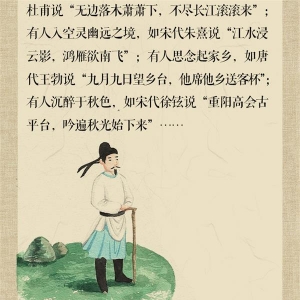 杜甫说“无边落木萧萧下，不尽长江滚滚来”；
有人入空灵幽远之境，如宋代朱熹说“江水浸
云影，鸿雁欲南飞”；有人思念起家乡，如唐
代王勃说“九月九日望乡台，他席他乡送客杯”；
有人沉醉于秋色，如宋代徐铉说“重阳高会古
平台，吟遍秋光始下来”……